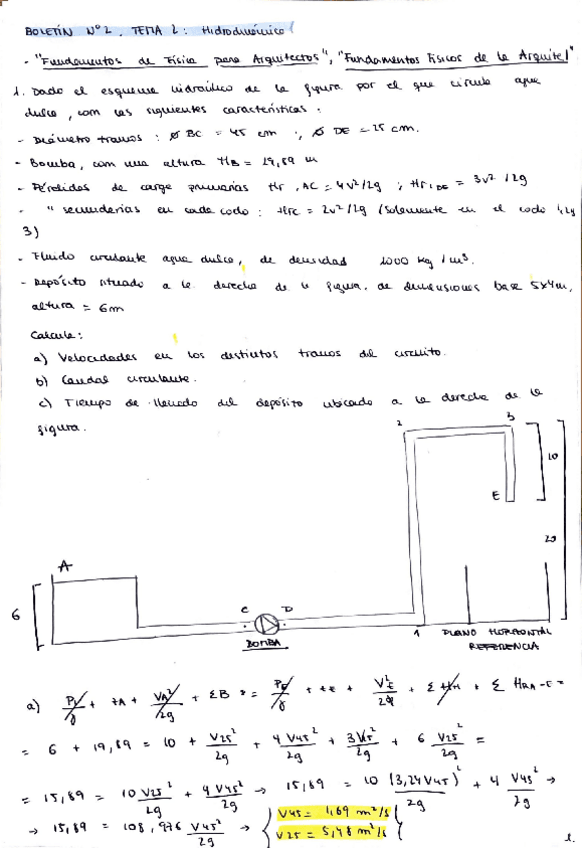 BOLETÍN Nº 2. TEMA 2: Hidrodinámica
- "Fundamentos de Física para Arquitectos", "Fundamentos Físicos de la Arquitec"
1. Dado el esquema hidráulico de la figura por el que circula agua
dulce, con las siguientes características:
- Diámetro tramos: Ø BC = 45 cm ; Ø DE = 25 cm.
- Bomba, con una altura HB = 19,89 m
- Pérdidas de carga primarias Hr, AC = 4v²/2g ; Hr, DE = 3v²/2g
- " secundarias en cada codo: Hrc = 2v²/2g (solamente en el codo 1,2 y
3)
- Fluido circulante agua dulce, de densidad 1000 kg/m³.
- Depósito situado a la derecha de la figura, de dimensiones base 5x4m,
altura = 6m
Calcule:
a) Velocidades en los distintos tramos del circuito.
b) Caudal circulante.
c) Tiempo de llenado del depósito ubicado a la derecha de la
figura.
2 3
10
E
20
A
6
C D
BOMBA
1 PLANO HORIZONTAL
REFERENCIA
a) P1/γ + ZA + VA²/2g + ΣB = PE/γ + ZE + VE²/2g + Σ Hrl + Σ HRA-E =
= 6 + 19,89 = 10 + V25²/2g + 4 V45²/2g + 3V25²/2g + 6 V25²/2g =
= 15,89 = 10 V25²/2g + 4 V45²/2g → 15,89 = 10 (3,24 V45)²/2g + 4 V45²/2g →
→ 15,89 = 108,976 V45²/2g → { V45 = 1,69 m²/s
V25 = 5,48 m²/s
1.